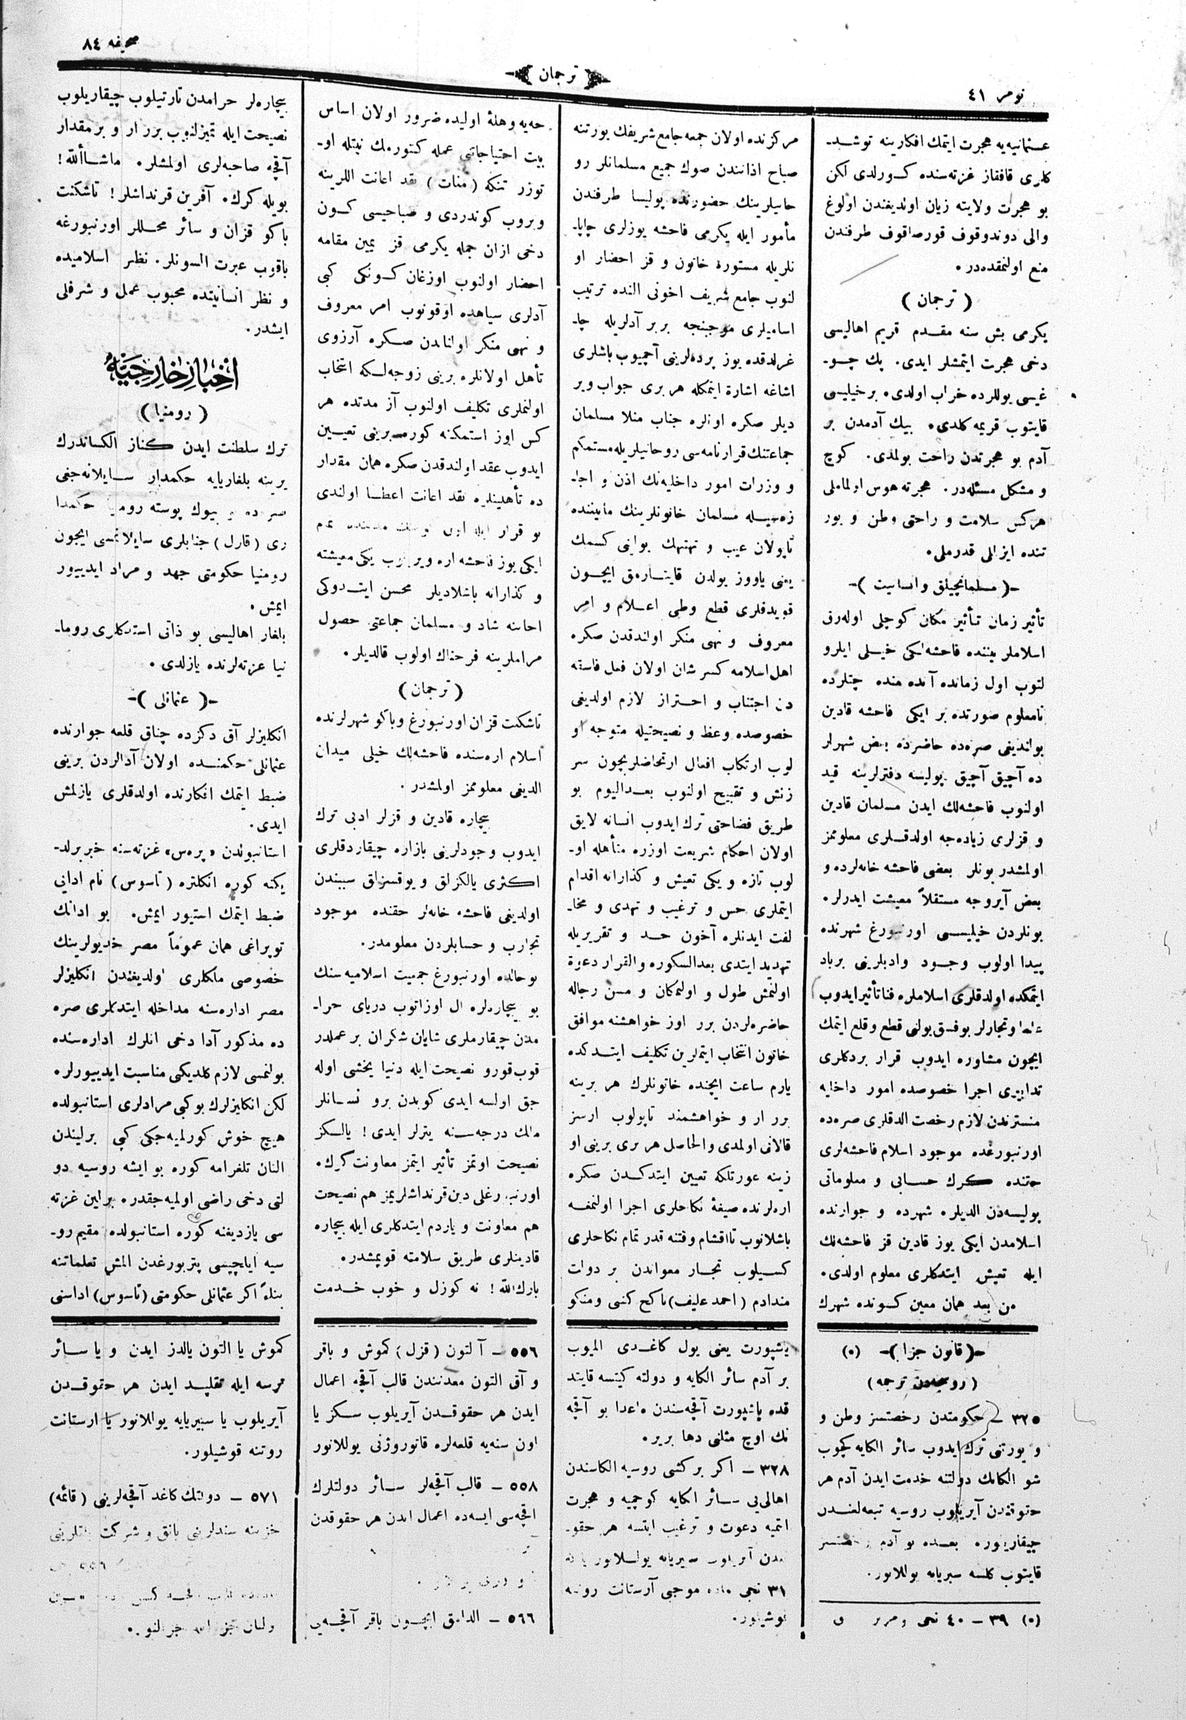 نومر ٤١
ترجمان
صحیفه ٨٤
عثمانیه‌یه هجرت ایتمك افكارینه توشد-
كلری قافقاز غزته‌سنده كورلدی لكن
بو هجرت ولایته زیان اولدیغندن اولوغ
والی دوندوقوف قورصاقوف طرفندن
منع اولنقده‌در.
(ترجمان)
یكرمی بش سنه مقدم قریم اهالیسی
دخی هجرت ایتمشلر ایدی. پك چو-
غیسی یوللرده خراب اولدی. برخیلیسی
قایتوب قریمه كلدی. بیك آدمدن بر
آدم بو هجرتدن راحت بولمدی. كوچ
و مشكل مسئله‌در. هجرته هوس اولماملی
هركس سلامت و راحتی وطن و یور
تنده ایزالی قدرملی.
-(مسلمانچیلق و انسانیت)-
تأثیر زمان تأثیر مكان كوچلی اوله‌رق
اسلاملر بیننده فاحشه‌لكی خیلی ایلرو
لتوب اول زمانده آنده منده چتلرده
نامعلوم صورتده بر ایكی فاحشه قادین
بولندیغی صره‌ده حاضرده بعض شهرلر
ده آچیق آچیق پولیسه دفترلرینه قید
اولنوب فاحشه‌لك ایدن مسلمان قادین
و قزلری زیاده‌جه اولدقلری معلوممز
اولمشدر بونلر بعضی فاحشه خانه‌لرده و
بعض آیروجه مستقلاً معیشت ایدرلر.
بونلردن خیلیسی اورنبورغ شهرنده
پیدا اولوب وجود وادبلرینی برباد
ایتمكده اولدقلری اسلاملره فنا تأثیر ایدوب
علما و تجارلر بوفسق بولنی قطع و قلع ایتمك
ایچون مشاوره ایدوب قرار بردكلری
تدابیری اجرا خصوصده امور داخلیه
منسترندن لازم رخصت الدقلری صره‌ده
اورنبورغده موجود اسلام فاحشه‌لری
حقنده كرك حسابی و معلوماتی
پولیسه‌دن الدیلر. شهرده و جوارنده
اسلامدن ایكی یوز قادین قز فاحشه‌لك
ایله تعیش ایتدكلری معلوم اولدی.
من بعد همان معین كونده شهرك
مركزنده اولان جمعه جامع شریفك یورتنه
صباح اذانندن صوك جمیع مسلمانلر رو
حانیلرینك حضورنده پولیسا طرفندن
مأمور ایله یكرمی فاحشه یوزلری چاپا-
نلریله مستوره خاتون و قز احضار او
لنوب جامع شریف اخونی النده ترتیب
اسامیلری موجبنجه بربر آدلریله چا-
غرلدقده یوز پرده‌لرینی آچیوب باشلری
اشاغه اشارة ایتمكله هر بری جواب ویر
دیلر صكره اونلره جناب منلا مسلمان
جماعتنك قرارنامه‌سی روحانیلریله مستحكم
و وزرات امور داخلیه‌نك اذن و اجا-
زه‌سیله مسلمان خاتونلرینك مابیننده
تاپولان عیب و تهتهك بولنی كسمك
یعنی یاووز یولدن قایتارمق ایچون
قویدقلری قطع وطی اعلام و امر
معروف و نهی منكر اولندقدن صكره
اهل اسلامه كسر شان اولان فعل فاسقه
دن اجتناب و احتراز لازم اولدیغی
خصوصده وعظ و نصیحتیله متوجه او
لوب ارتكاب افعال ارتحاضلریچون سر
زنش و تقبیح اولنوب بعدالیوم بو
طریق فضاحتی ترك ایدوب انسانه لایق
اولان احكام شریعت اوزره متأهله او-
لوب تازه و یكی تعیش و كذارانه اقدام
ایتملری حس و ترغیب و تهدی و مخا-
لفت ایدنلره آخون حد و تقریریله
تهدید ایتدی بعدالسكوره والقرار دعوة
اولنمش طول و اولنمكان و مسن رجاله
حاضره‌لردن برر اوز خواهشنه موافق
خاتون انتخاب ایتملرین تكلیف ایتدكده
یارم ساعت ایچنده خاتونلرك هر برینه
برر ار و خواهشمند تاپولوب ارسز
قالانی اولمدی والحاصل هر بری برینی او
زینه عورتلكه تعیین ایتدكدن صكره
اره‌لرنده صیغۀ نكاحلری اجرا اولنمغه
باشلانوب تا اقشام وقتنه قدر تمام نكاحلری
كسیلوب تجار معواندن بر دولت
مندادم (احمد علیف) ناكح كنسی ومنكو
حه‌یه وهلۀ اولیده ضرور اولان اساس
بیت احتیاجاتی عمله كتورمك نیتله او-
توزر تنكه (منات) نقد اعانت اللرینه
ویروب كوندردی و صباحیسی كون
دخی ازان جمله یكرمی قز یمین مقامه
احضار اولنوب اوزغان كونكی كبی
آدلری سیاهده اوقونوب امر معروف
و نهی منكر اولناندن صكره آرزوی
تأهل اولانلره برینی زوجه‌لكه انتخاب
اولنملری تكلیف اولنوب آز مدتده هر
كس اوز استمكنه كوره برینی تعیین
ایدوب عقد اولندقدن صكره همان مقدار
ده تأهلینلره نقد اعانت اعطا اولندی
بو قرار ایله
ایكی یوز فاحشه اره ویریلوب یكی معیشته
و كذارانه باشلادیلر محسن ایتدوكی
احاسنه شاد و مسلمان جماعتی حصول
مراملرینه فرحناك اولوب قالدیلر.
(ترجمان)
تاشكنت قزان اورنبورغ وباكو شهرلرنده
اسلام اره‌سنده فاحشه‌لك خیلی میدان
الدیغی معلوممز اولمشدر.
بیچاره قادین و قزلر ادبی ترك
ایدوب وجودلرینی بازاره چیقاردقلری
اكثری یالكزلق و یوقسزلق سببندن
اولدیغی فاحشه خانه‌لر حقنده موجود
تجارب و حسابلردن معلومدر.
بو حالده اورنبورغ جمعیت اسلامیه سنك
بو بیچاره‌لره ال اوزاتوب دریای حرا-
مدن چیقارملری شایان شكران بر عملدر
قوب‌قورو نصیحت ایله دنیا یخشی اوله
جق اولسه ایدی كوبدن برو انسانلر
ملك درجه‌سنه یترلر ایدی! یالكز
نصیحت اوتمز تأثیر ایتمز معاونت كرك.
اورنبورغلی دین قرنداشلریمز هم نصیحت
هم معاونت و یاردم ایتدكلری ایله بیچاره
قادینلری طریق سلامته قویمشدر.
بارك الله! نه كوزل و خوب خدمت
بیچاره‌لر حرامدن تارتیلوب چیقاریلوب
نصیحت ایله تمیزلنوب برر ار و بر مقدار
آقچه صاحبه‌لری اولمشلر. ماشاألله!
بویله كرك. آفرین قرنداشلر! تاشكنت
باكو قزان و سائر محللر اورنبورغه
باقوب عبرت السونلر. نظر اسلامیده
و نظر انسانیتده محبوب عمل و شرفلی
ایشدر.
اخبار خارجیه
(رومنیا)
ترك سلطنت ایدن كناز الكساندرك
یرینه بلغاریایه حكمدار سایلانه‌جغی
صره‌ده بیوك پوسته رومنیا حكمدا
ری (قارل) جنابلری سایلانمسی ایچون
رومنیا حكومتی جهد و مراد ایدییور
ایمش.
بلغار اهالیسی بو ذاتی استدكلری روما-
نیا غزته‌لرنده یازلدی.
-(عثمانلی)-
انكلیزلر آق دكزده چناق قلعه جوارنده
عثمانلی حكمنده اولان آدالردن برینی
ضبط ایتمك افكارنده اولدقلری یازلمش
ایدی.
استانبولدن «پره‌س» غزته‌سنه خبر برلد-
یكنه كوره انكلتره (تاسوس) نام ادایی
ضبط ایتمك استیور ایمش. بو ادانك
توپراغی همان عموماً مصر خدیولرینك
خصوصی ملكلری اولدیغندن انكلیزلر
مصر اداره‌سنه مداخله ایتدكلری صره
ده مذكور آدا دخی انلرك اداره‌سنده
بولنمسی لازم كلدیكی مناسبت ایدییورلر.
لكن انكلیزلرك بوكی مرادلری استانبولده
هیچ خوش كورلمیه‌جكی كبی برلیندن
النان تلغرامه كوره بو ایشه روسیه دو
لتی دخی راضی اولمیه‌جقدر. برلین غزته
سی یازدیغنه كوره استانبولده مقیم رو-
سیه ایلچیسی پتربورغدن المش تعلیماتنه
بناءً اكر عثمانلی حكومتی (تاسوس) اداسنی
-(قانون جزا)- (٥)
(روسجه‌دن ترجمه)
٣٢٥ - حكومتدن رخصتسز وطن و
و یورتنی ترك ایدوب سائر الكایه كچوب
شو الكانك دولتنه خدمت ایدن آدم هر
حقوقدن آیریلوب روسیه تبعه‌لغندن
چیقاریلور. بعده بو آدم رخصتسز
قایتوب كلسه سبریایه یوللانور.
(٥) ٣٩ - ٤٠ نجی
پشپورت یعنی یول كاغدی المیوب
بر آدم سائر الكایه و دولته كیتسه قایتد
قده پاشپورت آقچه‌سندن ماعدا بو آقچه
نك اوچ مثلنی دها بریر.
٣٢٨ - اكر بر كشی روسیه الكاسندن
اهالی‌یی سائر الكایه كوچمیه و هجرت
اتمیه دعوت و ترغیب ایتسه هر حقو-
قدن آیریلوب سیبریایه یوللانور یا ده
٣١ نجی ماده موجبی آرستانت روتنه
قوشیلور.
٥٥٦ - آلتون (قزل) كموش و باقر
و آق التون معدنندن قالب آقچه اعمال
ایدن هر حقوقدن آیریلوب سكز یا
اون سنه‌یه قلعه‌لره قاتورژنی یوللانور
٥٥٨ - قالب آقچه‌لر سائر دولتلرك
اقچه‌سی ایسه‌ده اعمال ایدن هر حقوقدن
٥٦٦ - الدامق ایچون باقر آقچه‌یی
كموش یا التون یالدز ایدن و یا سائر
نرسه ایله تقلید ایدن هر حقوقدن
آیریلوب یا سیبریایه یوللانور یا ارستانت
روتنه قوشیلور.
٥٧١ - دولتك كاغد آقچه‌لرینی (قائمه)
خزینه سندلرینی بانق و شركت بیتلرینی